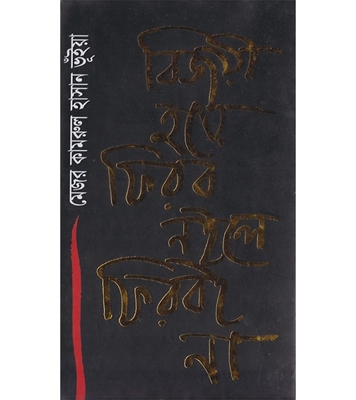 মেজর কামরুল হাসান ভূঁইয়া
বিজয়ী
হয়ে
ফিরব
নইলে
ফিরবই
না